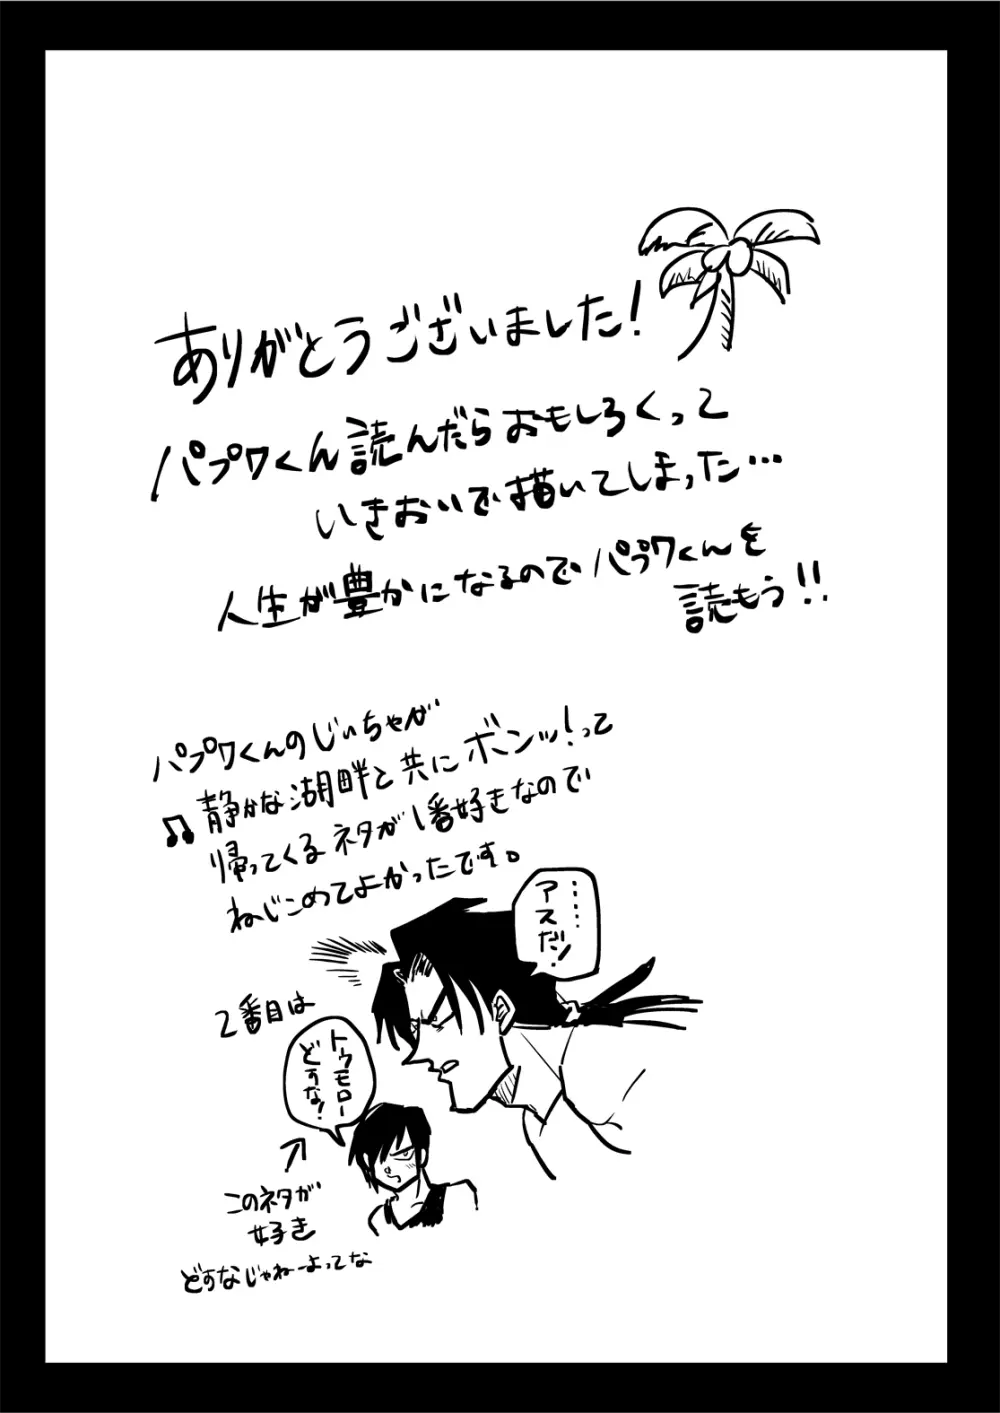 ありがとうございました!
パプワくん読んだらおもしろくって
いきおいで描いてしまった…
人生が豊かになるのでパプワくんを
読もう!!
パプワくんのじいちゃが
♫静かな湖畔と共にボンッ!って
帰ってくるネタが1番好きなので
ねじこめてよかったです。
……
アスだッ!
2番目は
トゥモロー
どすな!
このネタが
好き
どすなじゃねーよってな